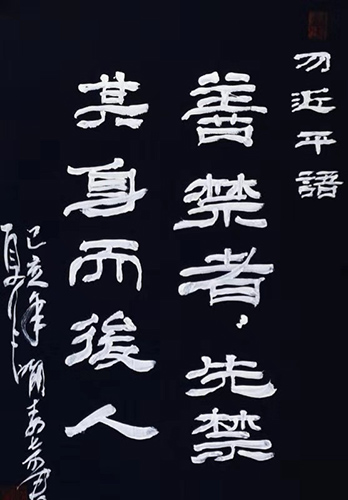 习近平語
善禁者，先禁
其身而後人
己亥年
夏